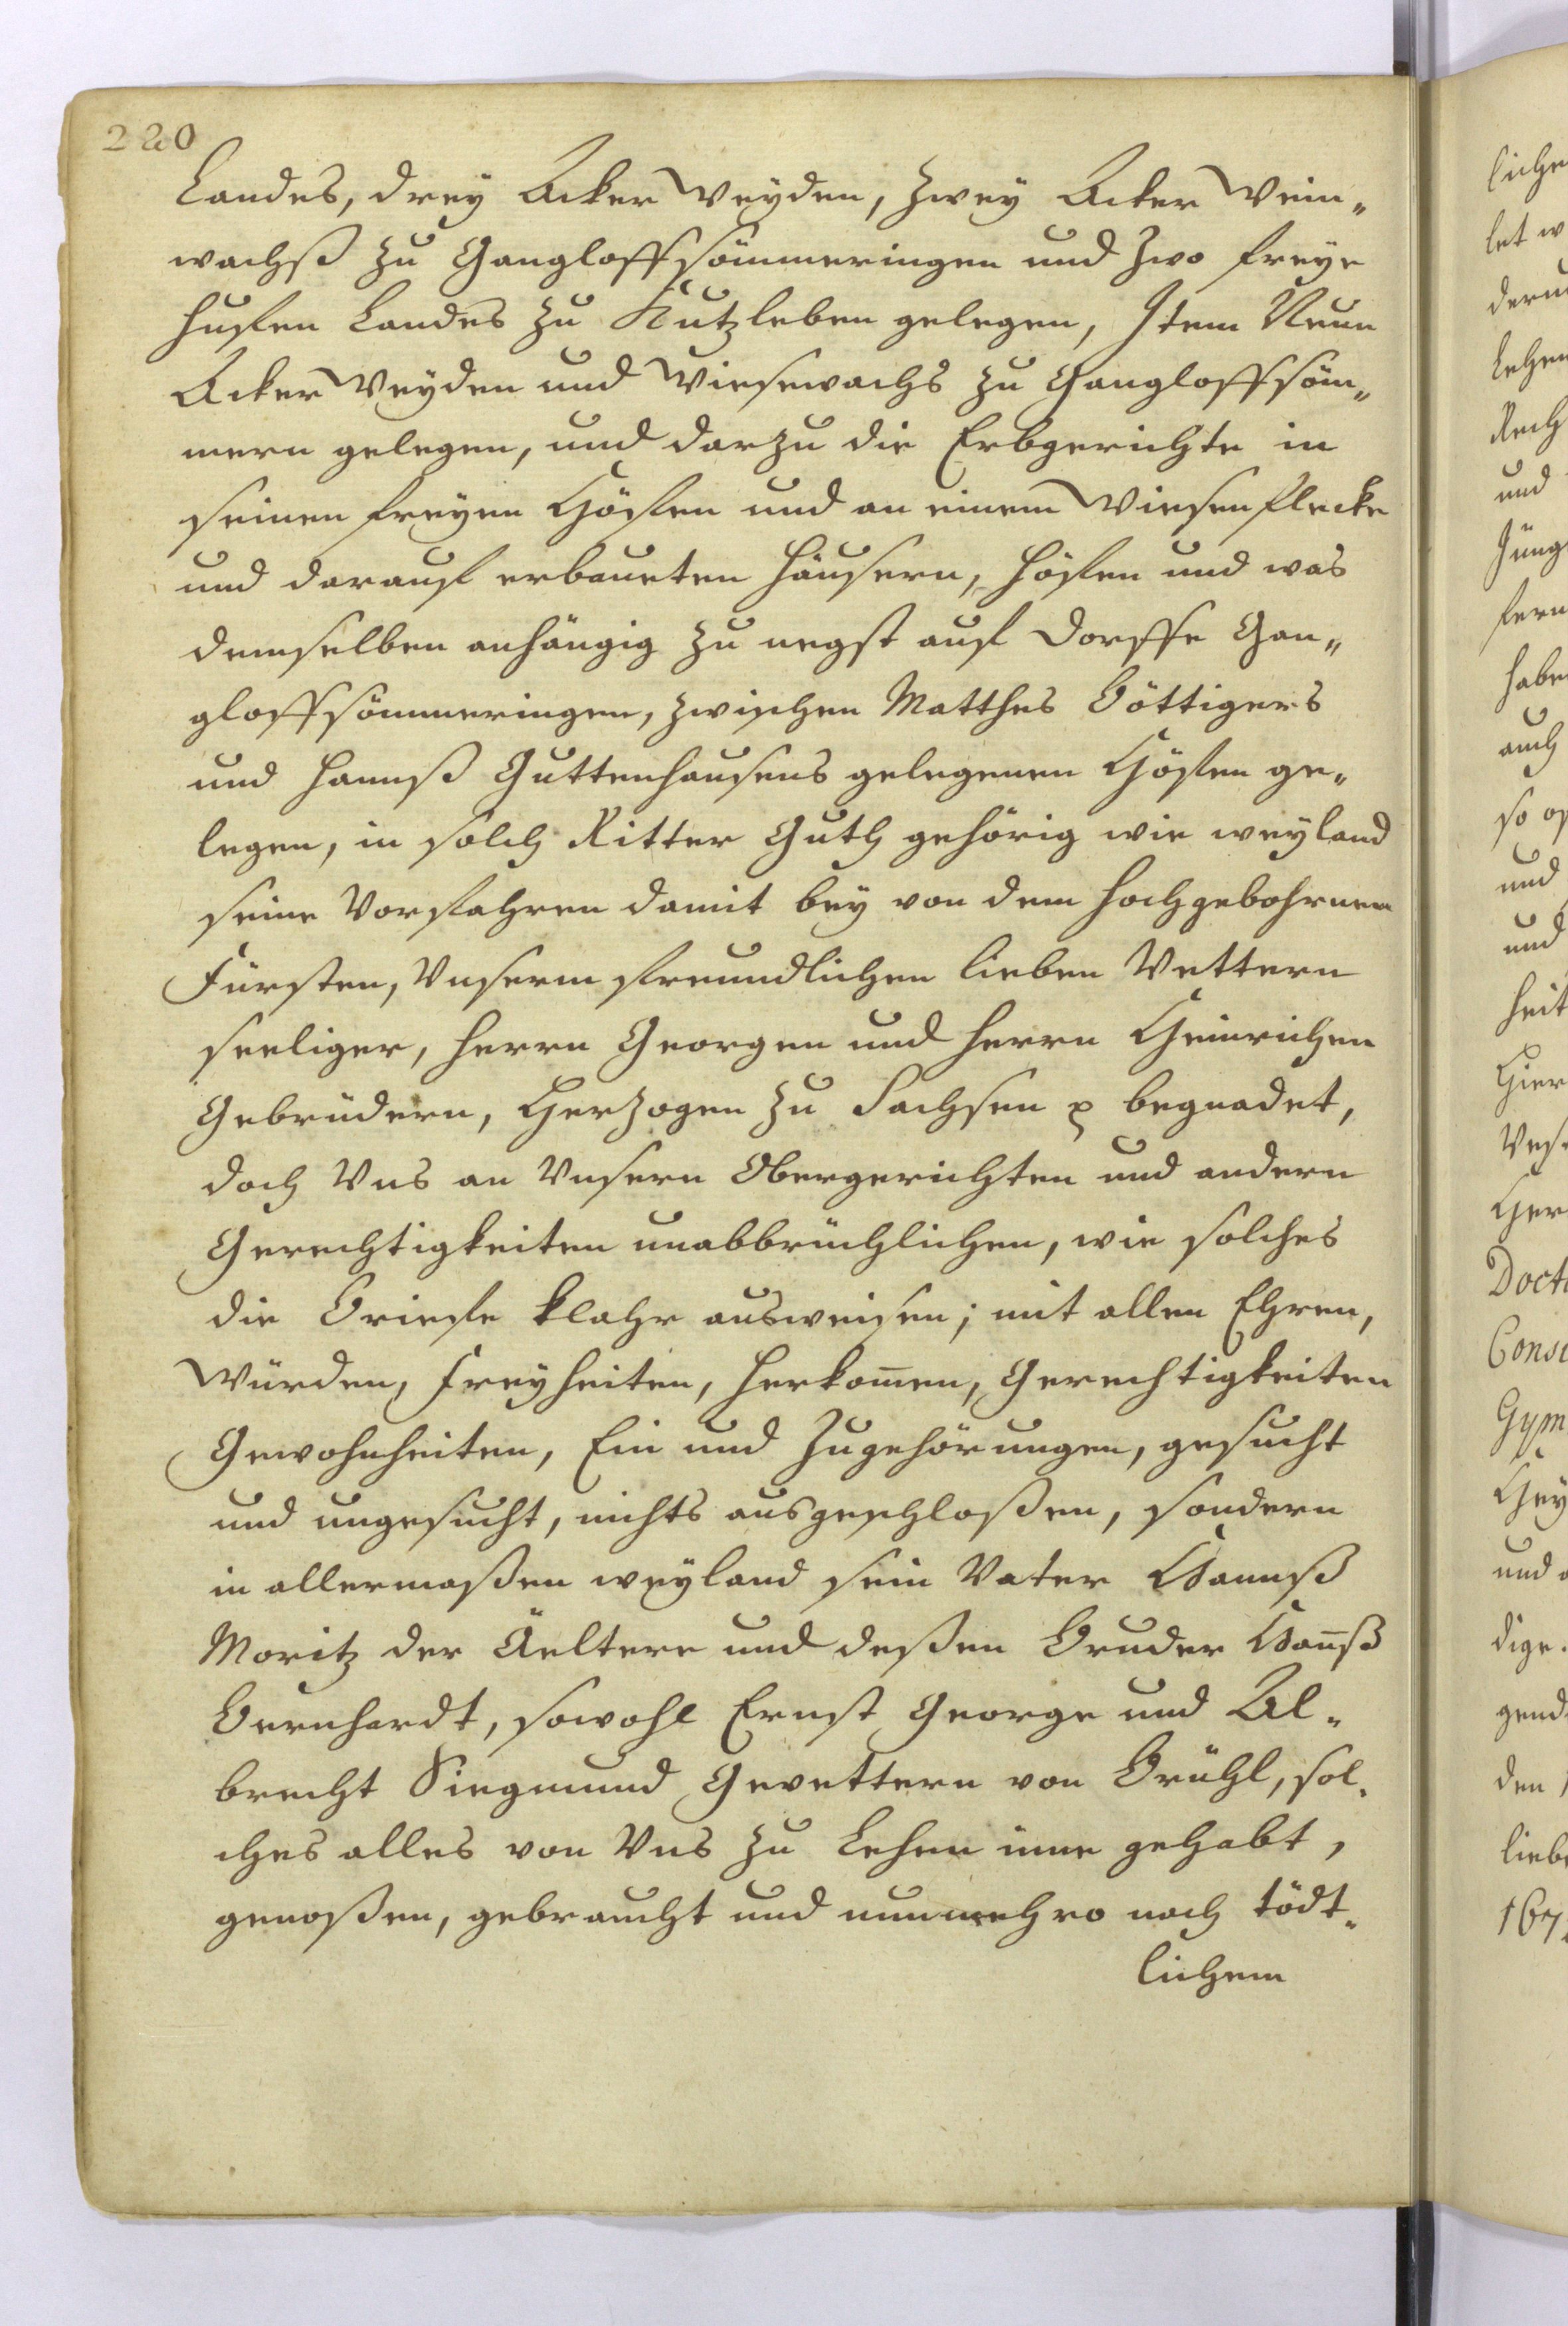 220
Landes, drey Acker Weyden, zwey Acker Wein„
wachß zu Gangloffsömmeringen und zwo freye
Hufen Landes zu Kutzleben gelegen, Item Neun
Acker Weyden und Wiesewachs zu Gangloffsöm„
mern gelegen, und darzu die Erbgerichte in
seinen freyen Höfen und an einem Wiesenflecke
und darauf erbaueten Häusern, Höfen und was
demselben anhängig zu negst auf Dorffe Gan„
gloffsömmeringen, zwischen Matthes Böttigers
und Hannß Guttenhausens gelegenen Höfen ge„
legen, in solch Ritter Guth gehörig wie weyland
seine Vorfahren damit bey von dem Hochgebohrnen
Fürsten, Unserm freundlichen lieben Vettern
seeliger, Herrn Georgen und Herrn Heinrichen
Gebrüdern, Herzogen zu Sachsen p begnadet,
doch Uns an Unsern Obergerichten und andern
Gerechtigkeiten unabbrüchlichen, wie solches
die Briefe klahr ausweisen; mit allen Ehren,
Würden, Freyheiten, Herkom̄en, Gerechtigkeiten
Gewohnheiten, Ein und Zugehörungen, gesucht
und ungesucht, nichts ausgeschloßen, sondern
in allermaßen weyland sein Vater Hannß
Moritz der Äeltere und deßen Bruder Han̄ß
Bernhardt, sowohl Ernst George und Al„
brecht Siegmund Gevettern von Brühl, sol„
ches alles von Uns zu Lehen inne gehabt,
genoßen, gebraucht und nunmehro nach tödt„
lichem
liche
let w
deru
Lehen
Rech
und
Jüng
fern
habe
auch
so o
und
und
heit
Hier
Ves
Her
Doct
Cons
Gym
Hey
und
dige.
gend
den
lieb
167